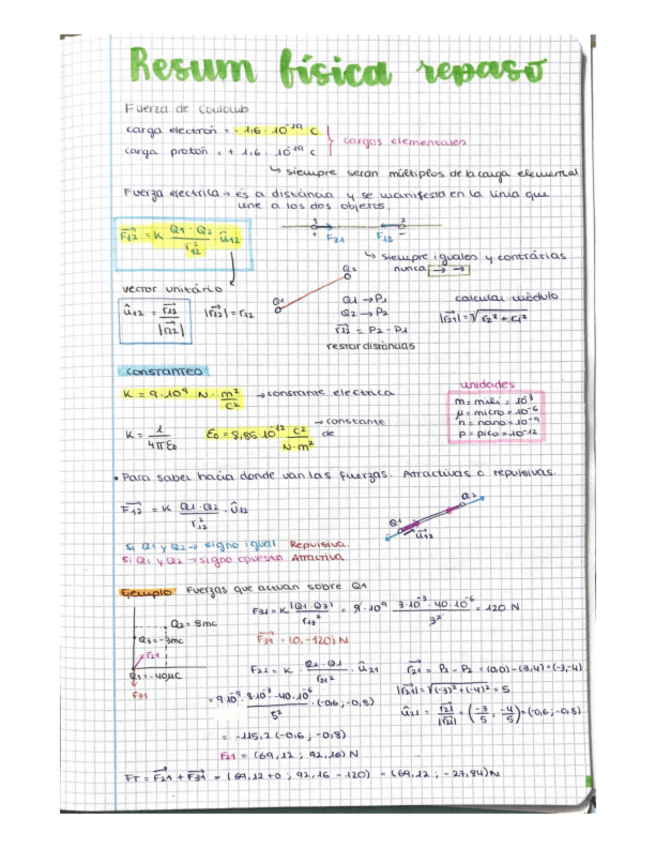 Resum física repaso
Fuerza de Coulomb
carga electrón = -1,6 · 10⁻¹⁹ C
carga protón = + 1,6 · 10⁻¹⁹ C
cargas elementales
↳ siempre seran múltiplos de la carga elemental
Fuerza electrica → és a distáncia y se manifesta en la línia que
une a los dos objetos.
F₁₂ = K Q1 · Q2 / r₁₂² · û₁₂
+ F₂₁ F₁₂ -
↳ siempre iguales y contrárias
nunca → →
vector unitário
û₁₂ = r₁₂ / |r₁₂| |r₁₂| = r₁₂
Q1 Q2
Q1 → P1
Q2 → P2
r₁₂ = P2 - P1
restar distáncias
calcular módulo
constantes
K = 9 · 10⁹ N · m² / C² → constante electrica
K = 1 / 4πε₀ ε₀ = 8,85 · 10⁻¹² C² / N · m² → constante de
unidades
m = mili = 10⁻³
μ = micro = 10⁻⁶
n = nano = 10⁻⁹
p = pico = 10⁻¹²
• Para saber hacia donde van las fuerzas. Atractivas o repulsivas.
F₁₂ = K Q1 · Q2 / r₁₂² · û₁₂
Q1 û₁₂ Q2
Si Q1 y Q2 → signo igual Repulsiva.
Si Q1 y Q2 → signo opuesto Atractiva
Ejemplo Fuerzas que actuan sobre Q1
Q2 = 8mc
Q3 = -3mc
F₂₁
Q1 = -40μC
F₃₁
F₃₁ = K |Q1 · Q3| / r₁₃² = 9 · 10⁹ 3 · 10⁻³ · 40 · 10⁻⁶ / 3² = 120 N
F₃₁ = (0, -120) N
F₂₁ = K · Q2 · Q1 / r₂₁² · û₂₁
r₂₁ = P1 - P2 = (0,0) - (3,4) = (-3,-4)
|r₂₁| = √(-3)² + (-4)² = 5
= 9 · 10⁹ · 8 · 10⁻³ · -40 · 10⁻⁶ / 5² · (-0,6 ; -0,8)
û₂₁ = r₂₁ / |r₂₁| = (-3/5 , -4/5) = (-0,6 ; -0,8)
= -115,2 (-0,6 ; -0,8)
F₂₁ = (69,12 ; 92,16) N
FT = F₂₁ + F₃₁ = (69,12 + 0 ; 92,16 - 120) = (69,12 ; -27,84) N